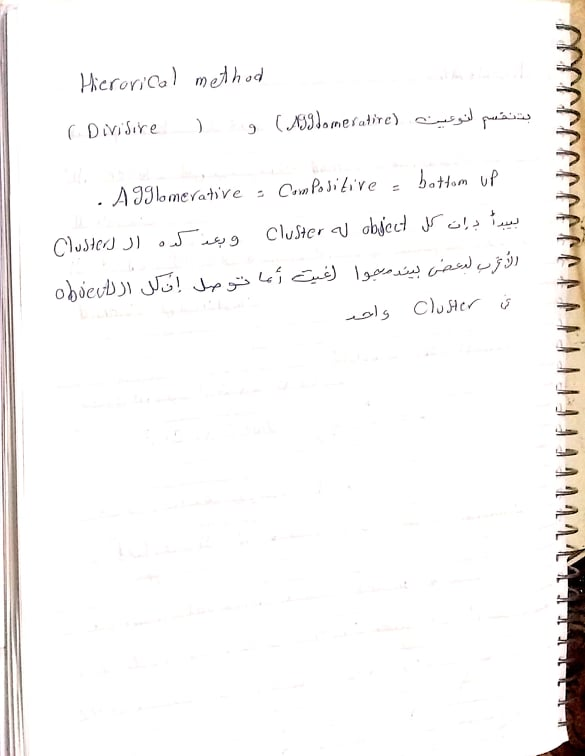 Hierarical method
بتنقسم لنوعين (Agglomerative) و (Divisive)
. Agglomerative = Compositive = bottom up
بيبدأ بإن كل object له Cluster وبعد كده الـ Clusters
الأقرب لبعض بيندمجوا لغيت أما توصل إن كل الـ objects
في Cluster واحد